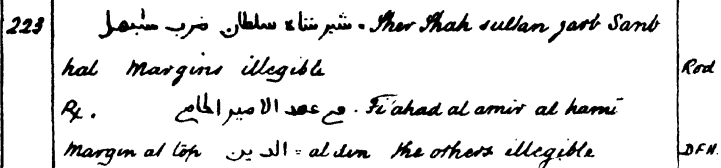 223 شیر شاه سلطان ضرب سنبهل - Sher Shah sultan zarb Sanb
hal Margins illegible Rod
Rx. فی عهد الامیر الحامی . Fi ahad al amir al hami
Margin at top الدین = al din the others illegible DFH.